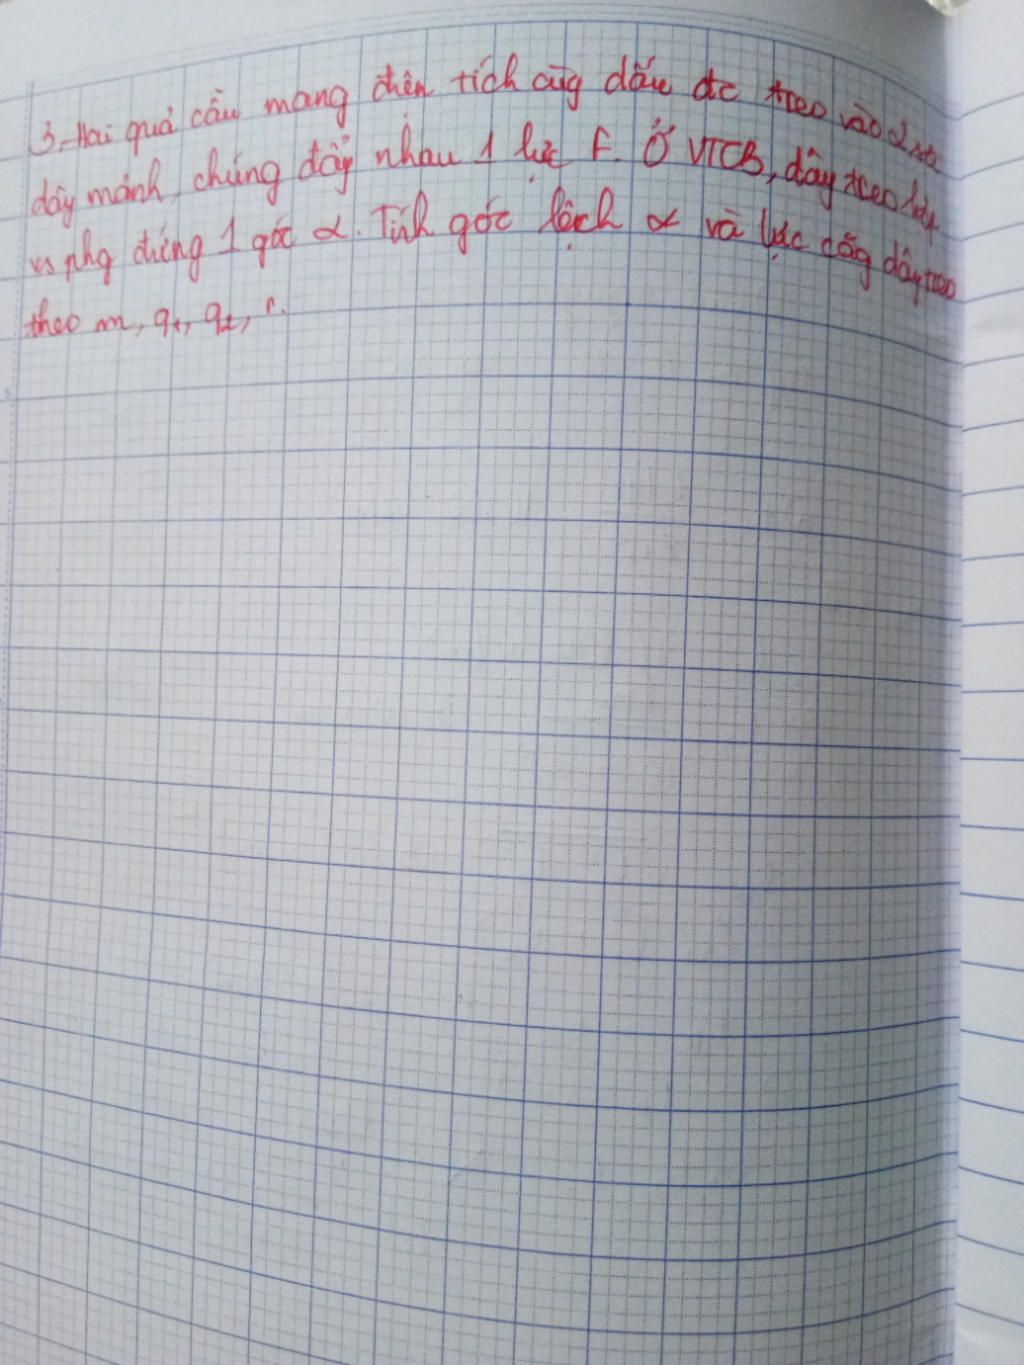 3. Hai quả cầu mang điện tích cùg dấu đc treo vào 2
dây mảnh, chúng đẩy nhau 1 lực F. Ở VTCB, dây treo hợp
vs phg đứng 1 góc α. Tính góc lệch α và lực căg dây treo
theo m, q₁, q₂, r.